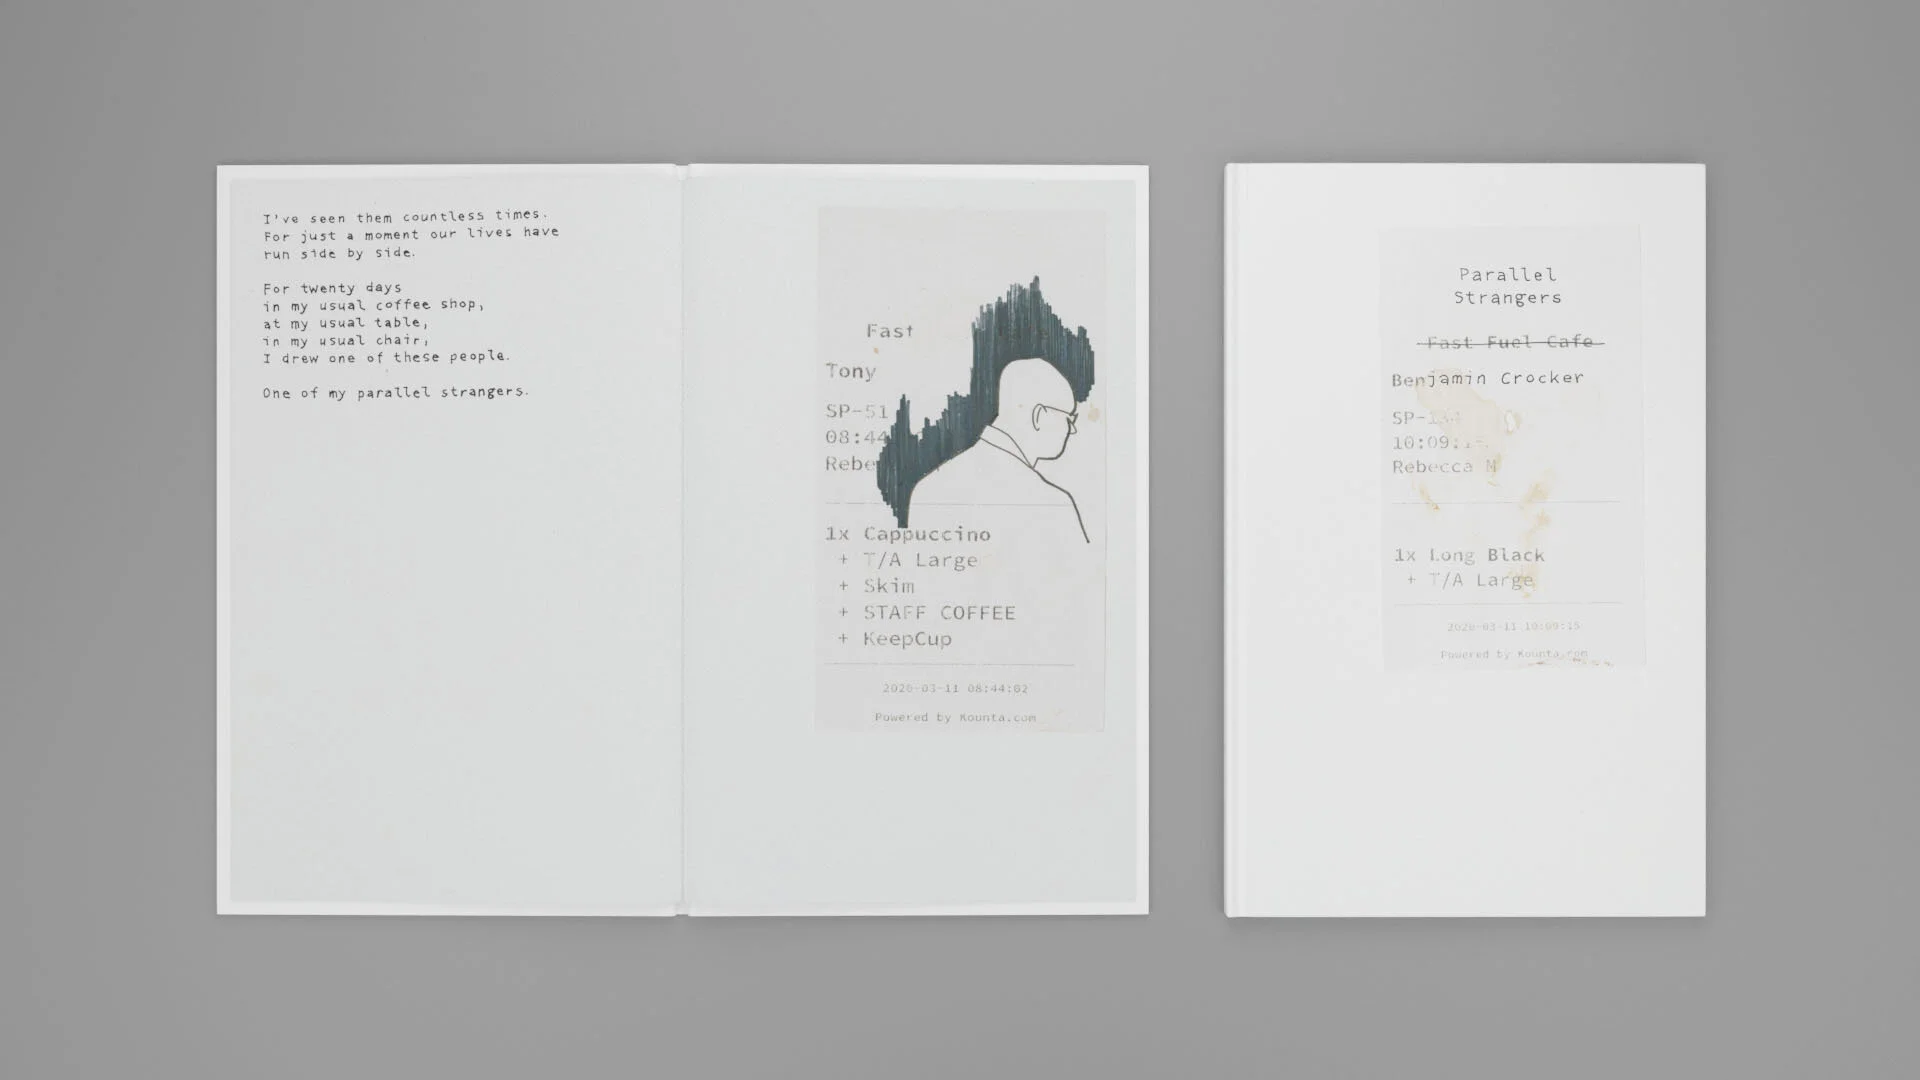 I've seen them countless times.
For just a moment our lives have
run side by side.
For twenty days
in my usual coffee shop,
at my usual table,
in my usual chair,
I drew one of these people.
One of my parallel strangers.
Fast
Tony
SP-51
08:44
Rebe
1x Cappuccino
+ T/A Large
+ Skim
+ STAFF COFFEE
+ KeepCup
2020-03-11 08:44:02
Powered by Kounta.com
Parallel
Strangers
Fast Fuel Cafe
Benjamin Crocker
SP-134
10:09:
Rebecca M
1x Long Black
+ T/A Large
2020-03-11 10:09:15
Powered by Kounta.com